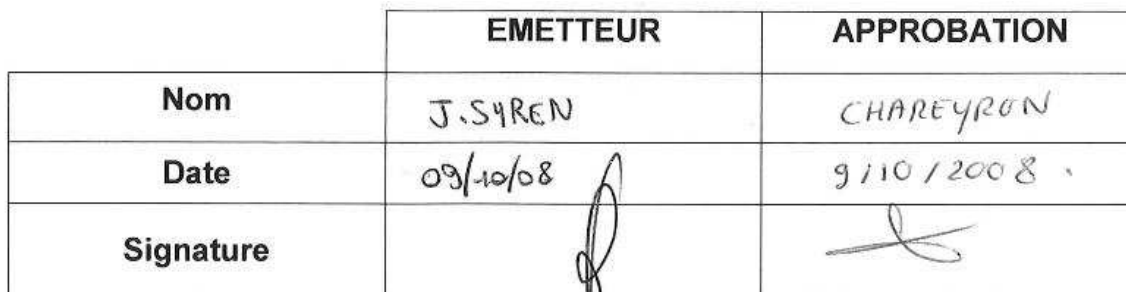 EMETTEUR APPROBATION
Nom J.SYREN CHAREYRON
Date 09/10/08 9/10/2008.
Signature